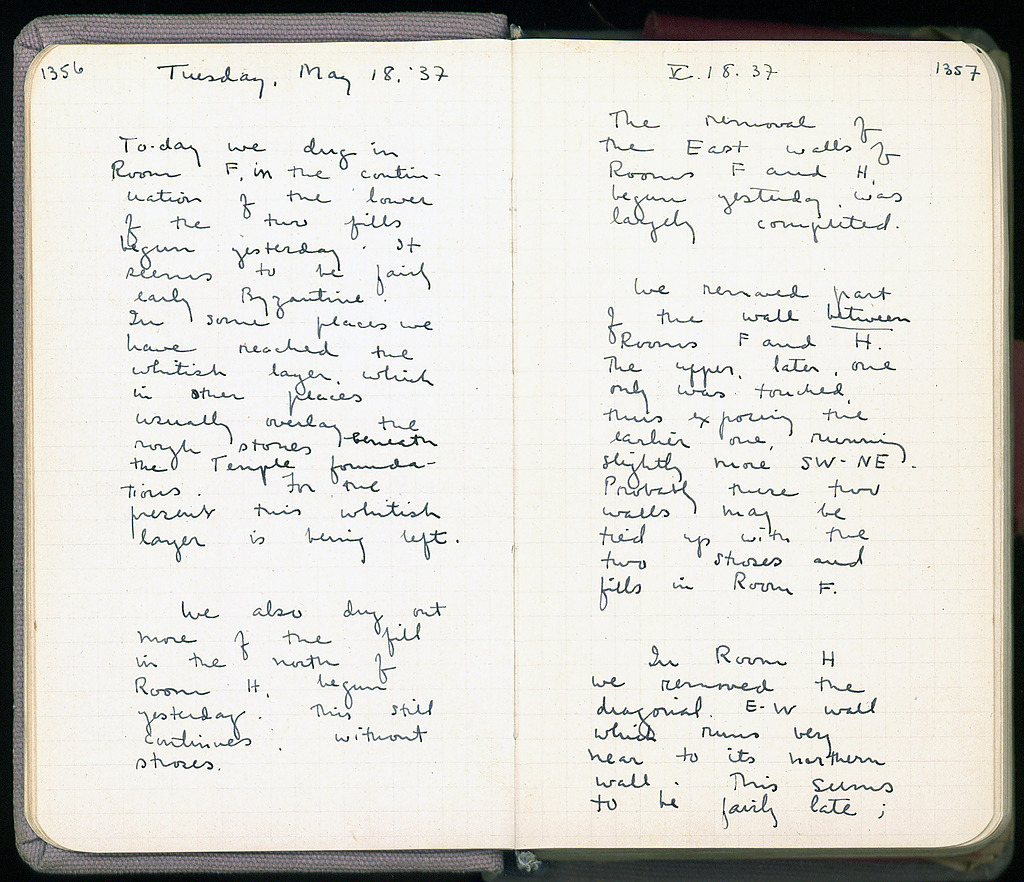 1356
Tuesday, May 18. '37
To-day we dug in
Room F, in the contin-
uation of the lower
of the two fills
begun yesterday. It
seems to be fairly
early Byzantine.
In some places we
have reached the
whitish layer, which
in other places
usually overlay the
rough stones beneath
the Temple founda-
tions. For the
present this whitish
layer is being left.
We also dug out
more of the fill
in the north of
Room H, begun
yesterday. This still
continues, without
stroses.
V. 18. 37
1357
The removal of
the East walls of
Rooms F and H,
begun yesterday, was
largely completed.
We removed part
of the wall between
Rooms F and H.
The upper, later, one
only was touched,
thus exposing the
earlier one, running
slightly more SW-NE.
Probably these two
walls may be
tied up with the
two stroses and
fills in Room F.
In Room H
we removed the
diagonal E-W wall
which runs very
near to its northern
wall. This seems
to be fairly late;